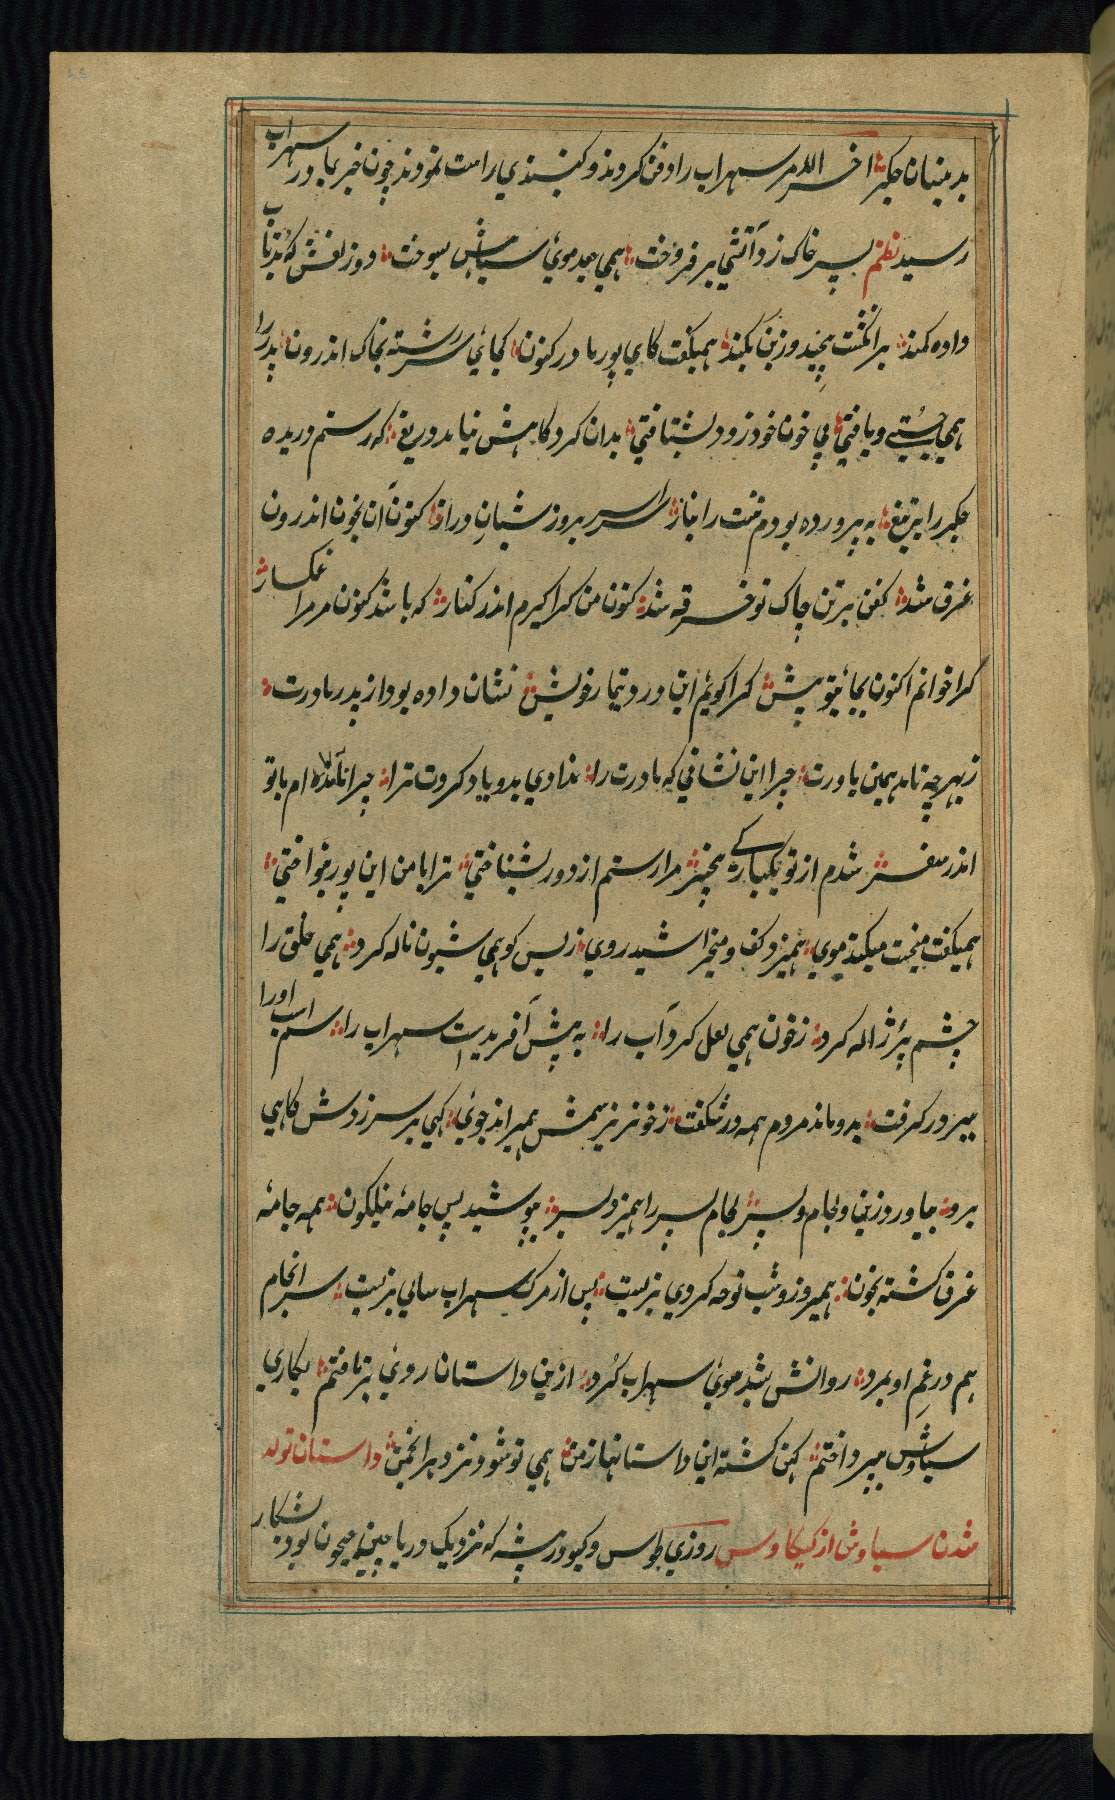 بدینسان جگر اخر الامر سهراب را دفن کردند و گنبذی راست نمودند چون خبر بمادر سهراب
رسید نظم بسر خاک زد آتشی بر فروخت همی جعد موی سیاهش بسوخت دو زلفش که تاب
داده کمند بر انگشت پیچید و زبن بکند همیگفت کای پور مادر کنون کجائی سرشته بخاک اندرون پدر را
همی جستی و یافتی پی خون خود زود بشتافتی بدان کرد کاهش نیامد دریغ که رستم دریده
جگر را بتیغ به پرورده بودم تنت را بناز سراسر بروز شبان دراز کنون آن بخون اندرون
غرق شد کفن برتن چاک تو خرقه شد کنون من کرا کیرم اندر کنار که باشد کنون مر مرا غمکسار
کرا خوانم اکنون بجای تو پیش کرا کویم این درد و تیمار خویش نشان داده بود از پدر مادرت
زبهر چه نامد همین یاورت چرا این نشانی که مادرت را ندادی بدو یاد کردت ترا چرا نامده ام با تو
اندر سفر شدم از تو یکباره کے بیخبر مرا رستم از دور بشناختی ترا با من این پور بنواختی
همیگفت میخت میکند موی همیزد کف و میخراشید روی زبس کو همی شیون ناله کرد همی خلق را
چشم پر ژاله کرد زخون همی لعل کرد آب را به پیش آفریدیت سهراب را سم اسب او را
ببر در کرفت بدو ماند مردم همه در شکفت زخونریز سمش همیراند جوی کهی بر سر زدش کاهی
برو بیاورد زین و لجام و سپر لجام سپر را همیزد بسر بپوشید پس جامهٔ نیلکون همه جامهٔ
غرق کشته بخون همیروز و شب نوحه کردی بزیست پس از مرک سهراب سالی بزیست سر انجام
هم در غم او بمرد روانش بشد موی سهراب کرد ازین داستان روی بر تافتم بکاری
سیاوش بپرداختم کهن کشته این داستانها زمن همی نو شود نزد هر انجمن داستان تولد
شدن سیاوش از کیکاوس روزی طوس و کیو در بیشه که نزدیک دریا جیحون بود بشکار